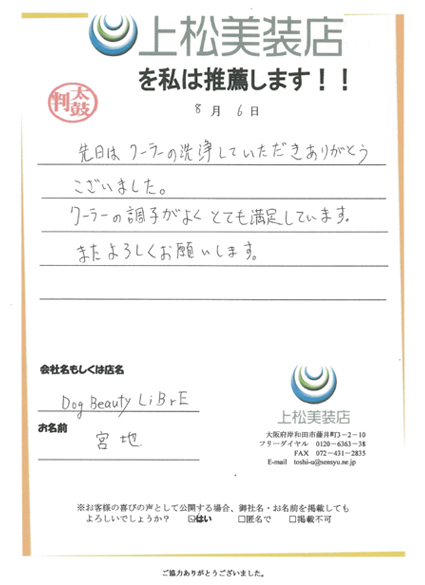 上松美装店
を私は推薦します！！
太鼓判
8月6日
先日は クーラーの洗浄していただきありがとう
ございました。
クーラーの調子がよく とても満足しています。
またよろしくお願いします。
会社名もしくは店名
Dog Beauty LiBrE
お名前
宮地
上松美装店
大阪府岸和田市藤井町3－2－10
フリーダイヤル 0120－6363－38
FAX 072－431－2835
E-mail toshi-u@sensyu.ne.jp
※お客様の喜びの声として公開する場合、御社名・お名前を掲載しても
よろしいでしょうか？ ☑はい □匿名で □掲載不可
ご協力ありがとうございました。